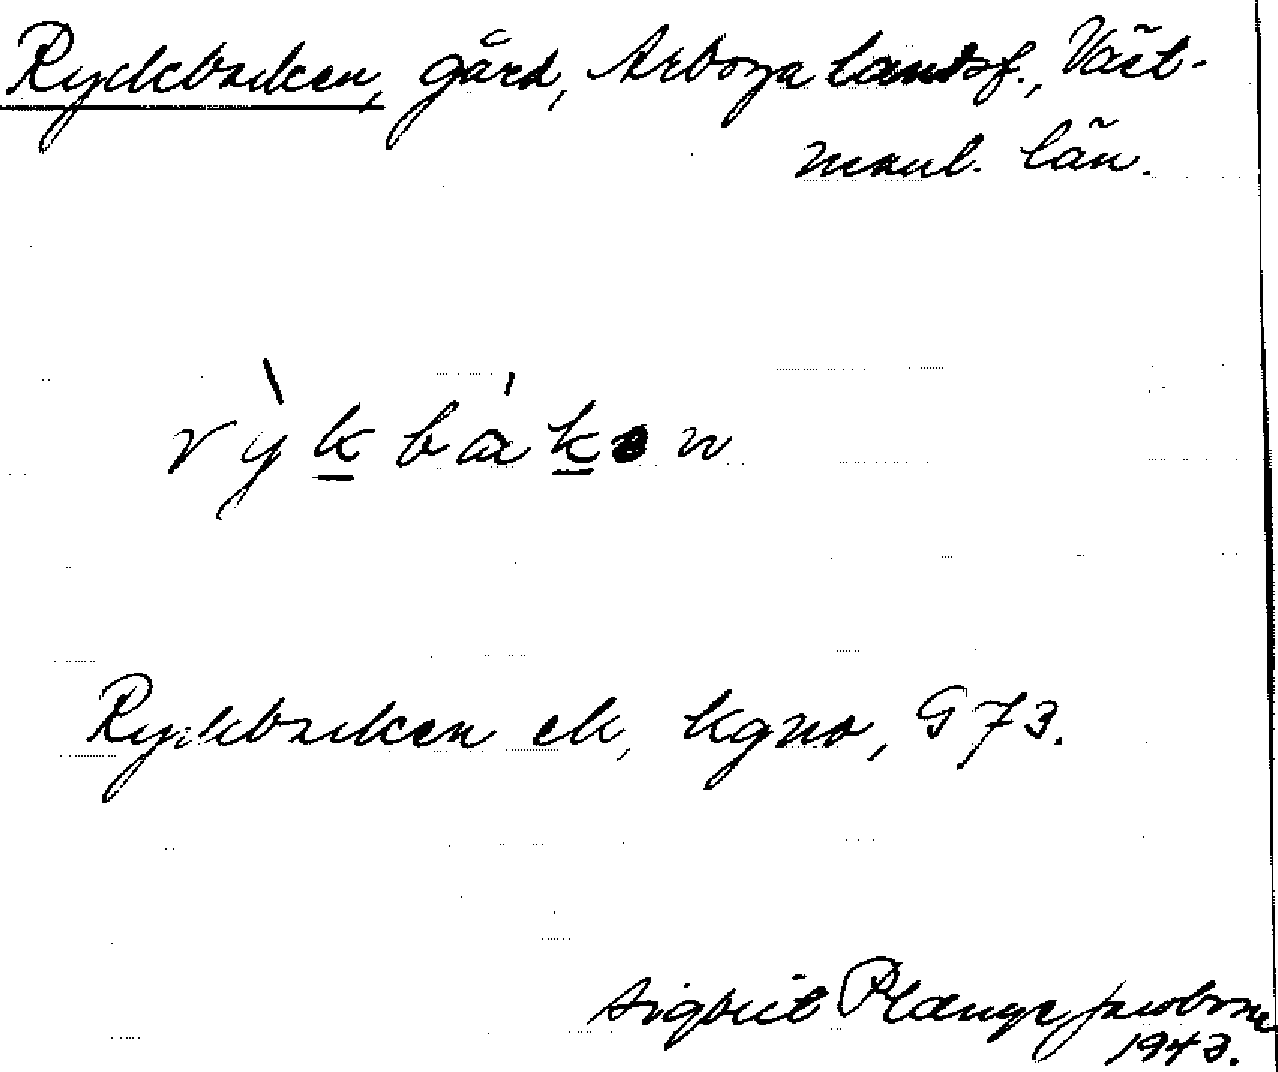 Ryckbacken, gård, Arboga landsf., Väst-
manl. län.
rỳk bàkən
Ryckbacken ek, kgno, G73.
Sigbrit Plænge Jacobson
1943.